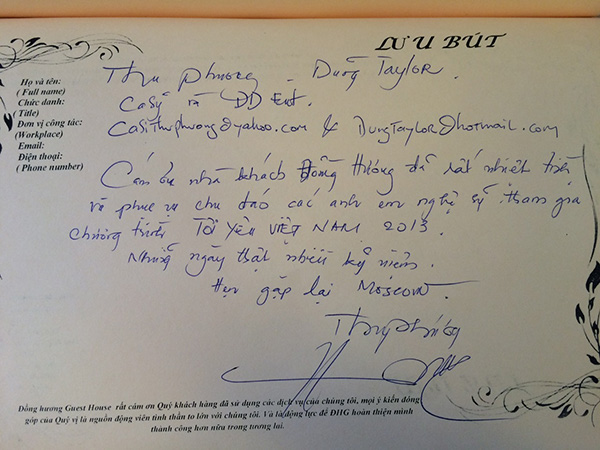 LƯU BÚT
Họ và tên:
( Full name)
Chức danh:
( Title)
Đơn vị công tác:
(Workplace)
Email:
Điện thọại:
( Phone number)
Thu Phương - Dũng Taylor.
Ca sỹ và DD Ent.
Casithuphuong@yahoo.com & DungTaylor@hotmail.com
Cám ơn nhà khách Đồng Hương đã rất nhiệt tiền
và phục vụ chu đáo các anh em nghệ sỹ tham gia
chương trình TÔI YÊU VIỆT NAM 2013.
Những ngày thật nhiều kỷ niệm.
Hẹn gặp lại Moscow.
Thu Phương
Đồng hương Guest House rất cám ơn Quý khách hàng đã sử dụng các dịch vụ của chúng tôi, mọi ý kiến đóng
góp của Quý vị là nguồn động viên tinh thần to lớn với chúng tôi. Và là động lực để ĐHG hoàn thiện mình
thành công hơn nữa trong tương lai.